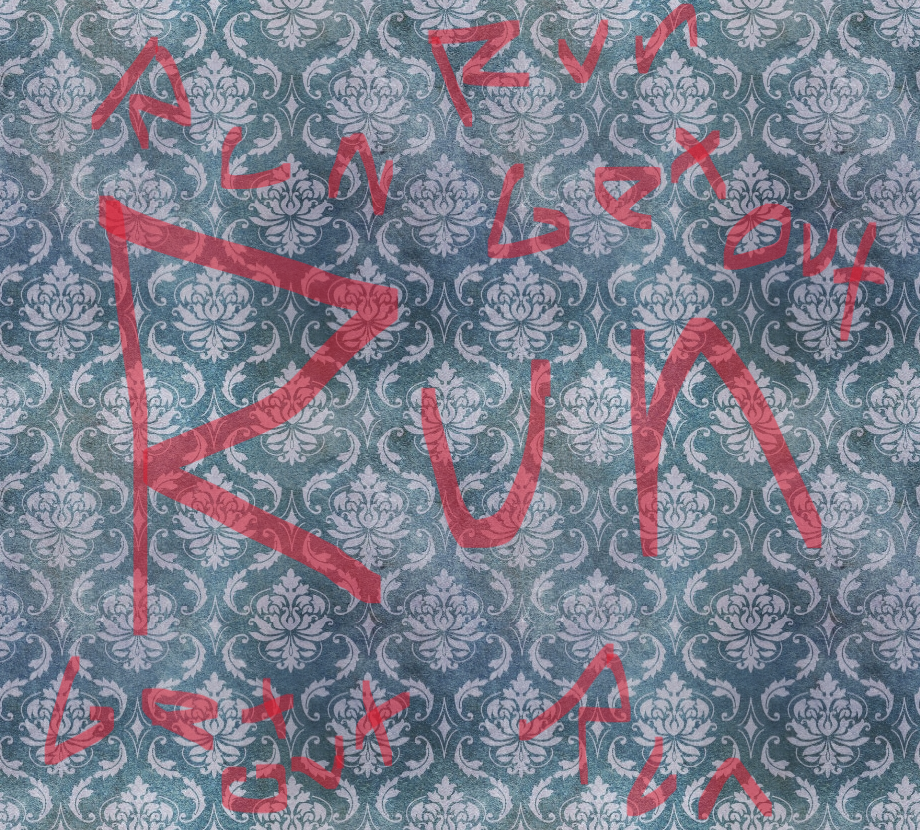 Run
Run
Get out
Run
Get out
Run